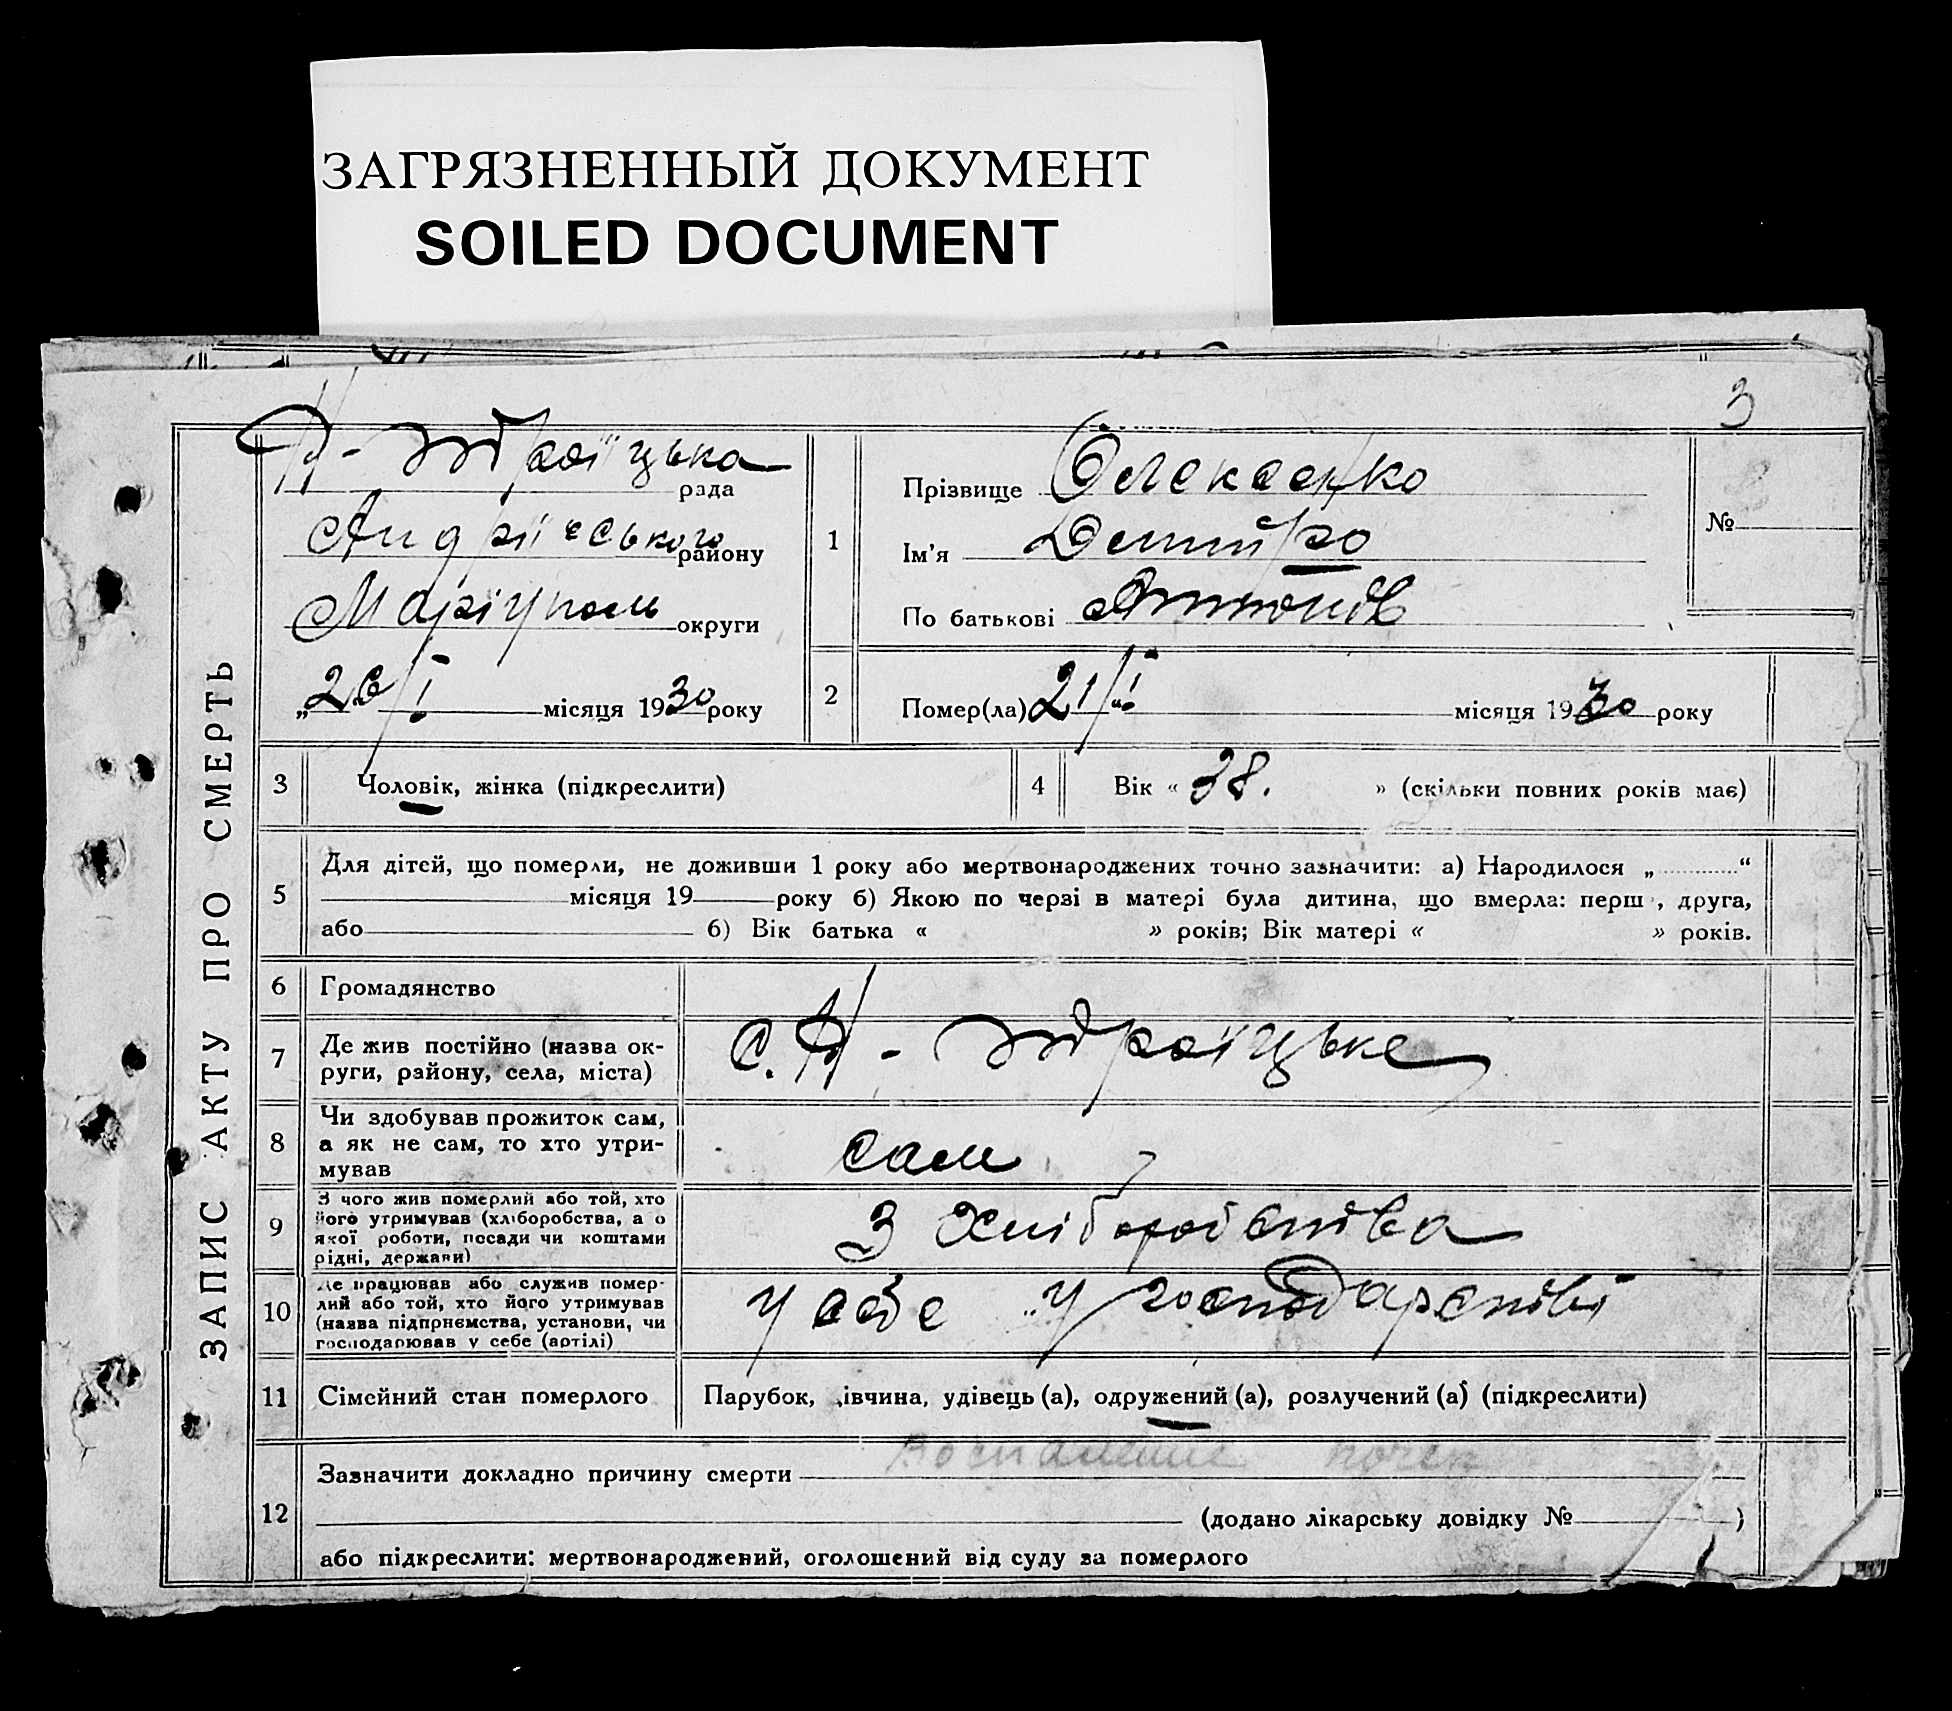 ЗАГРЯЗНЕННЫЙ ДОКУМЕНТ
SOILED DOCUMENT
3
ЗАПИС АКТУ ПРО СМЕРТЬ
Н-Троїцька рада
Андріївського району
Маріуполь округи
„26/I місяця 1930 року
1
Прізвище Олексенко
Ім'я Дмитро
По батькові Антонов
№
2
Помер(ла) 21/I місяця 1930 року
3 Чоловік, жінка (підкреслити)
4 Вік « 38. » (скільки повних років має)
5
Для дітей, що померли, не доживши 1 року або мертвонароджених точно зазначити: а) Народилося „ “
місяця 19 року б) Якою по черзі в матері була дитина, що вмерла: перш , друга,
або б) Вік батька « » років; Вік матері « » років.
6 Громадянство
7 Де жив постійно (назва ок-
руги, району, села, міста)
с. Н-Троїцьке
8 Чи здобував прожиток сам,
а як не сам, то хто утри-
мував
сам
9 З чого жив померлий або той, хто
його утримував (хліборобства, а о
якої роботи, посади чи коштами
рідні, держави)
З Хліборобства
10 Де працював або служив помер-
лий або той, хто його утримував
(назва підприємства, установи, чи
господарював у себе (артілі)
У себе у господарстві
11 Сімейний стан померлого Парубок, івчина, удівець (а), одружений (а), розлучений (а) (підкреслити)
12
Зазначити докладно причину смерти Воспаление почек
(додано лікарську довідку № )
або підкреслити: мертвонароджений, оголошений від суду за померлого